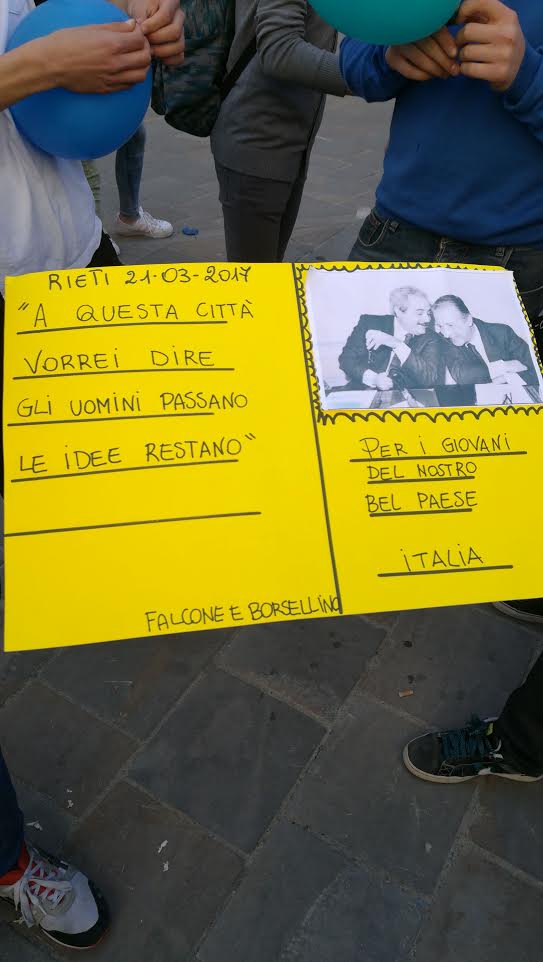 RIETI 21-03-2017
"A QUESTA CITTÀ
VORREI DIRE
GLI UOMINI PASSANO
LE IDEE RESTANO"
FALCONE E BORSELLINO
PER I GIOVANI
DEL NOSTRO
BEL PAESE
ITALIA